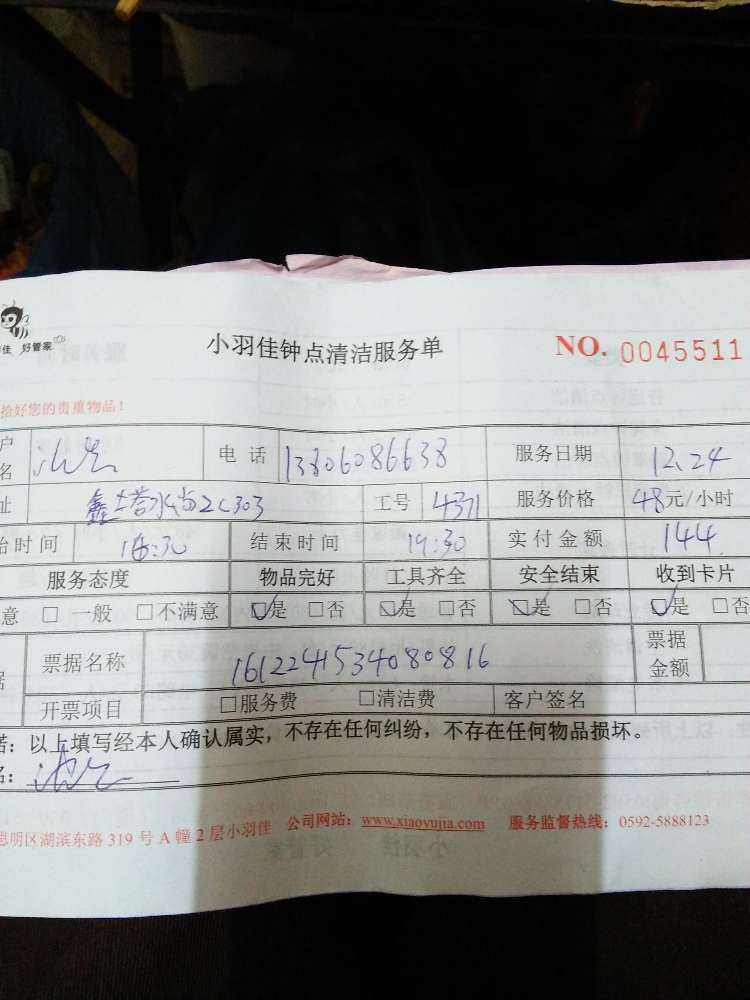 佳 好管家
小羽佳钟点清洁服务单 NO. 0045511
拾好您的贵重物品！
户名 电话 13806086638 服务日期 12.24
址 2C303 工号 4371 服务价格 48元/小时
始时间 16:30 结束时间 19:30 实付金额 144
服务态度 物品完好 工具齐全 安全结束 收到卡片
意 □一般 □不满意 ☑是 □否 ☑是 □否 ☑是 □否 ☑是 □否
据 票据名称 1612241534080816 票据金额
开票项目 □服务费 □清洁费 客户签名
诺：以上填写经本人确认属实，不存在任何纠纷，不存在任何物品损坏。
名：
思明区湖滨东路 319 号 A 幢 2 层小羽佳 公司网站：www.xiaoyujia.com 服务监督热线：0592-5888123